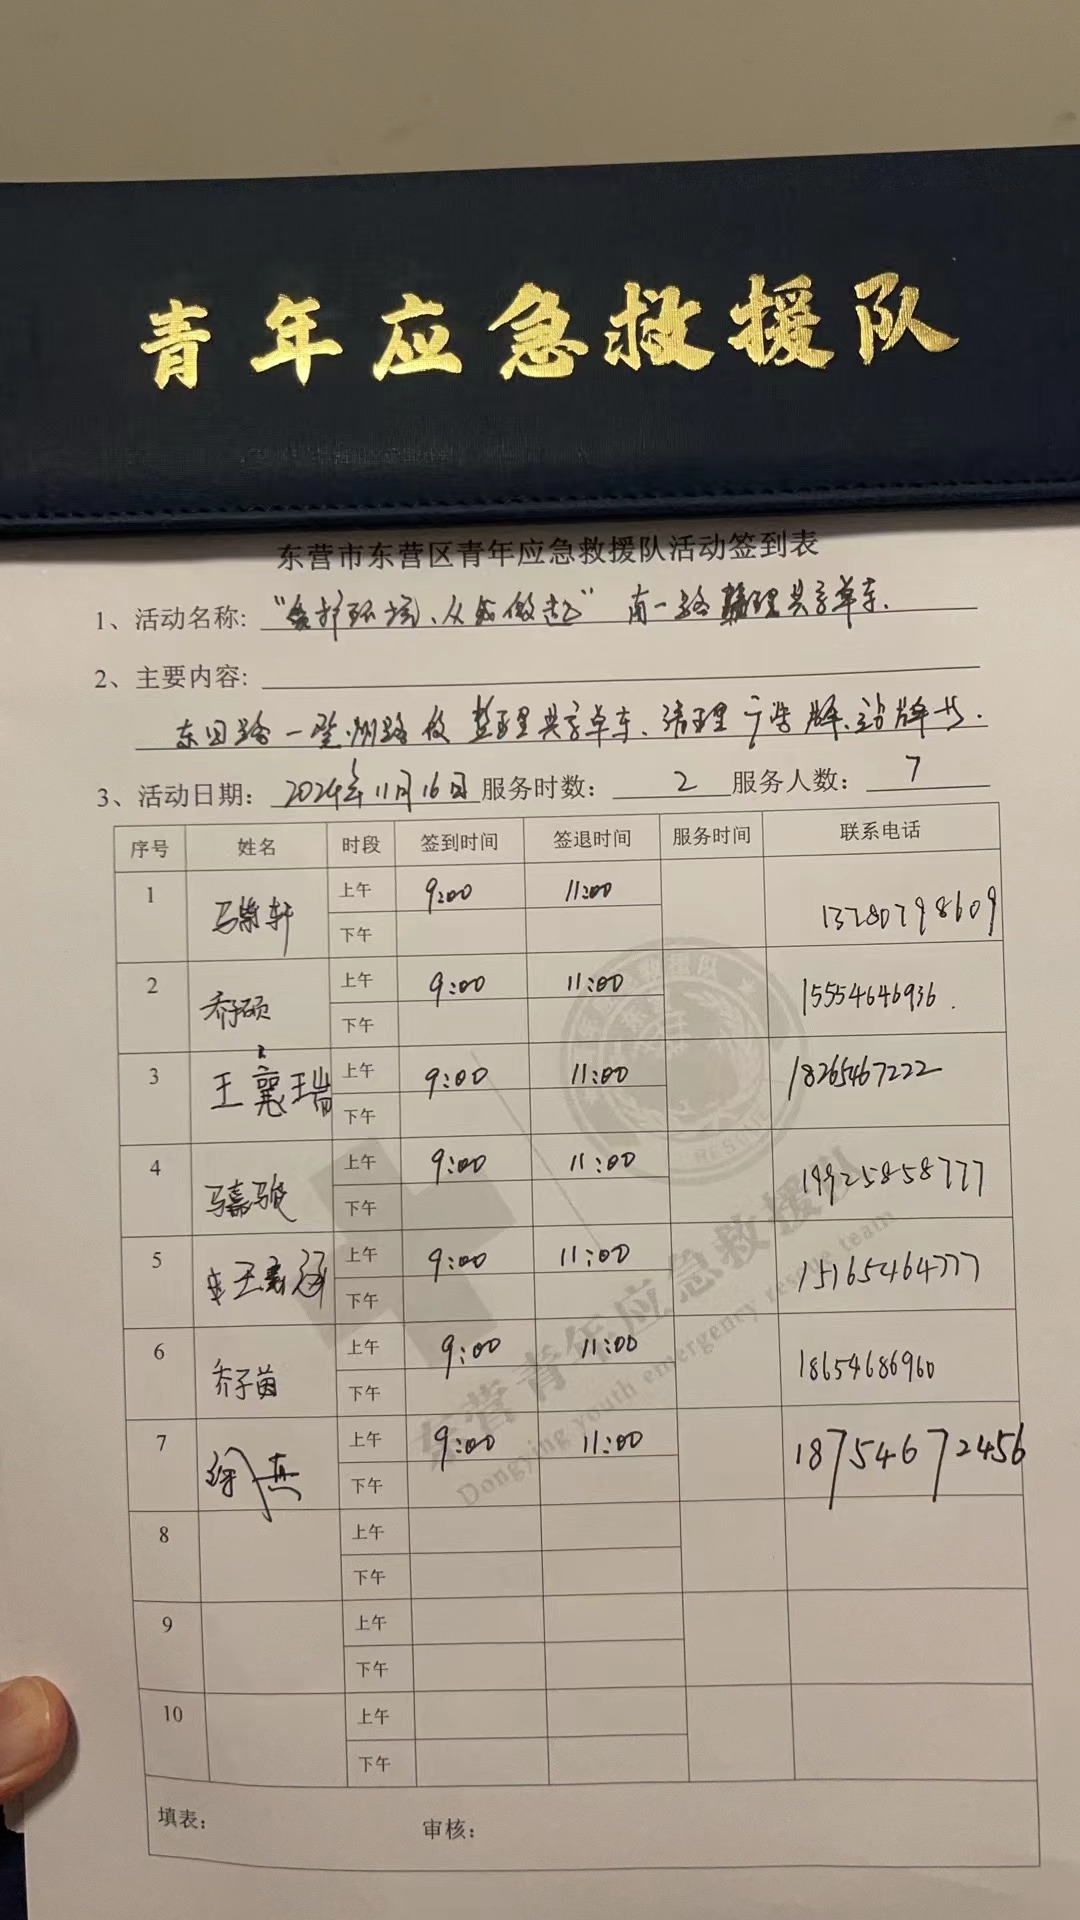 青年应急救援队
东营市东营区青年应急救援队活动签到表
1、活动名称: “爱护环境、从我做起” 南一路整理共享单车.
2、主要内容:
东四路一登州路段 整理共享单车、清理广告牌、站牌等.
3、活动日期: 2024年11月16日 服务时数: 2 服务人数: 7
序号 姓名 时段 签到时间 签退时间 服务时间 联系电话
1 马崇轩 上午 9:00 11:00 13780798609
下午
2 乔子硕 上午 9:00 11:00 15554646936.
下午
3 王襄瑞 上午 9:00 11:00 18265467222
下午
4 马嘉骏 上午 9:00 11:00 19925858777
下午
5 上午 9:00 11:00 15165464777
下午
6 乔子茵 上午 9:00 11:00 18654686960
下午
7 徐真 上午 9:00 11:00 18754672456
下午
8 上午
下午
9 上午
下午
10 上午
下午
填表: 审核:
东营青年应急救援队
Dongying youth emergency rescue team